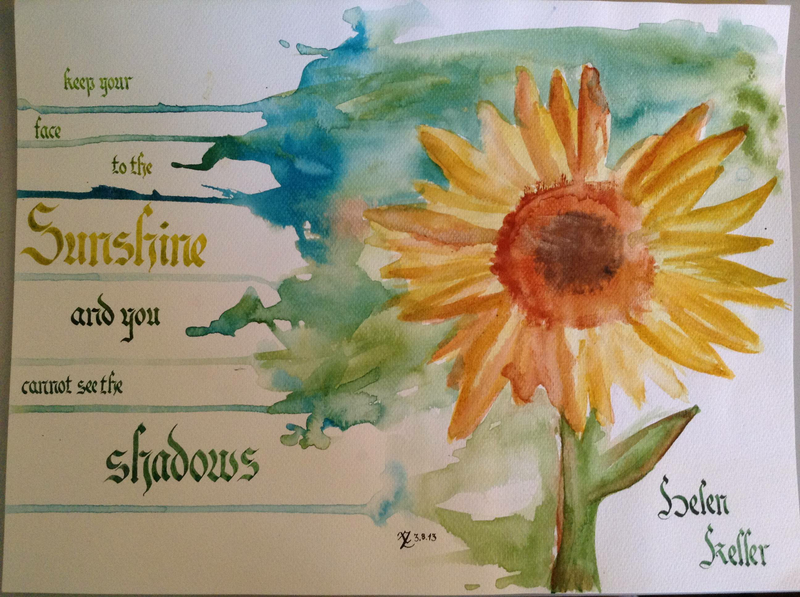 keep your
face
to the
Sunshine
and you
cannot see the
shadows
Helen
Keller
3.8.13